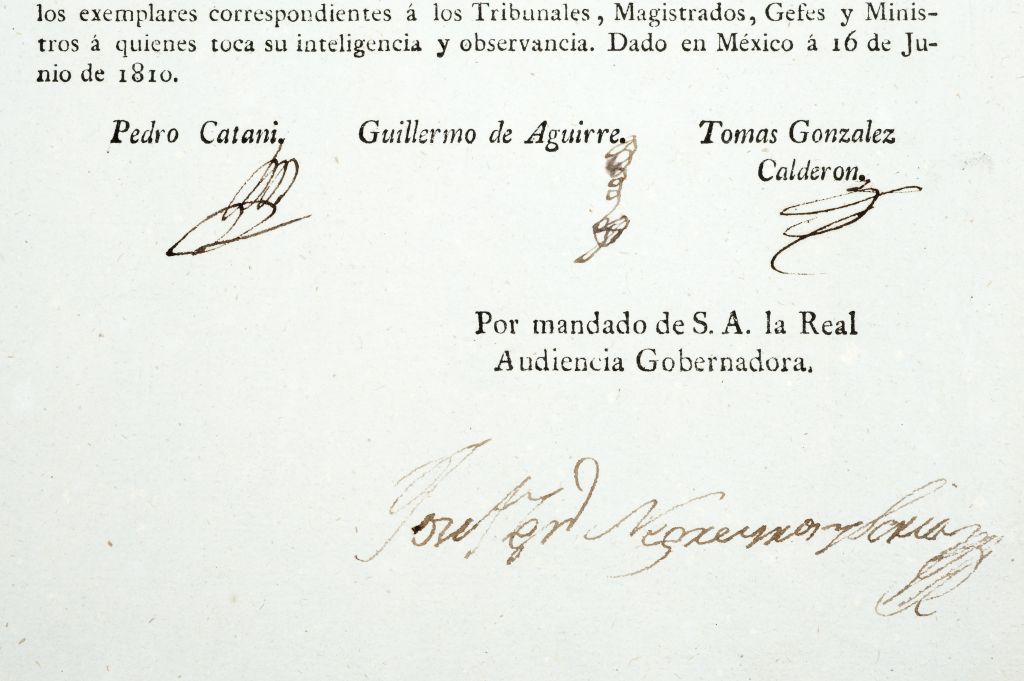 los exemplares correspondientes á los Tribunales, Magistrados, Gefes y Minis-
tros á quienes toca su inteligencia y observancia. Dado en México á 16 de Ju-
nio de 1810.
Pedro Catani. Guillermo de Aguirre. Tomas Gonzalez
Calderon.
Por mandado de S. A. la Real
Audiencia Gobernadora.
Negreyros y Soria